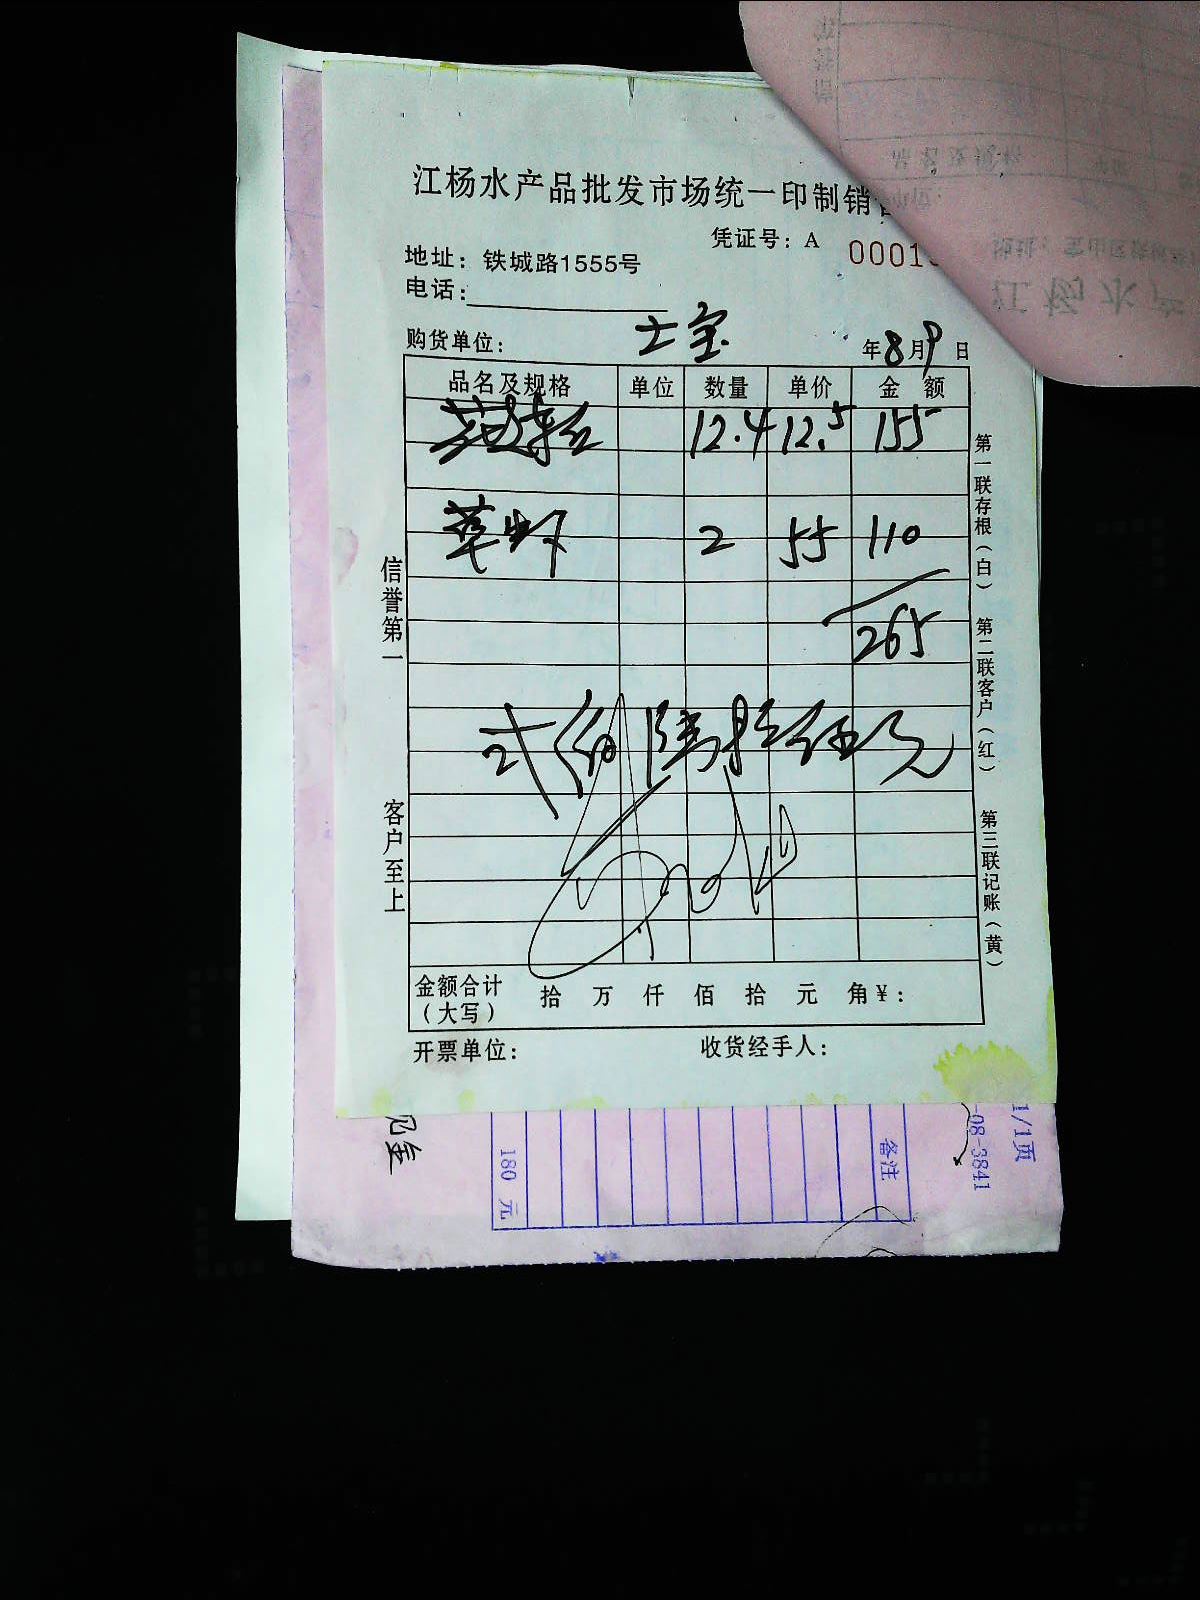 江杨水产品批发市场统一印制销
凭证号：A 00015
地址：铁城路1555号
电话：
购货单位： 士宝 年8月9日
品名及规格 单位 数量 单价 金额
12.4 12.5 155
草虾 2 55 110
265
弍佰陆拾伍元
金额合计（大写） 拾 万 仟 佰 拾 元 角 ¥：
开票单位： 收货经手人：
信誉第一 客户至上
第一联存根（白） 第二联客户（红） 第三联记账（黄）
1/1页
-08-3841
备注
180 元
江杨水产
品名及规格